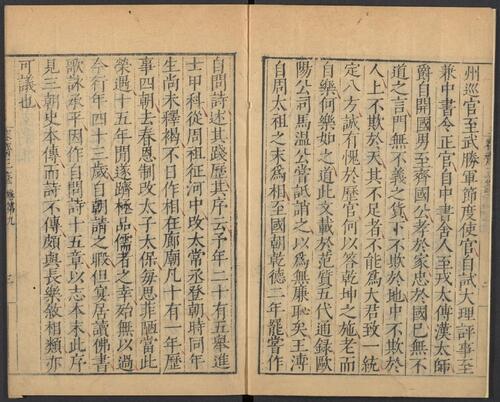 州巡官至武勝軍節度使官自試大理評事至
兼中書令正官自中書舍人至戎太傅漢太師
爵自開國男至齊國公孝於家忠於國已無不
道之言門無不義之貨下不欺於地中不欺於
人上不欺於天其不足者不能爲大君致一統
定八方誠有愧於歷官何以答乾坤之施老而
自樂何樂如之道此文載於范質五代通録歐
陽公司馬溫公嘗詆誚之以爲無廉恥矣王溥
自周太祖之末爲相至國朝乾德二年罷嘗作
自問詩述其踐歷其序云予年二十有五舉進
士甲科從周祖征河中改太常丞登朝時同年
生尚未釋褐不日作相在廊廟凡十有一年歷
事四朝去春恩制改太子太保每思菲陋當此
榮遇十五年間遂躋極品儒者之幸殆無以過
今行年四十三歲自朝請之暇但宴居讀佛書
歌詠承平因作自問詩十五章以志本末此序
見三朝史本傳而詩不傳頗與長樂敘相類亦
可議也